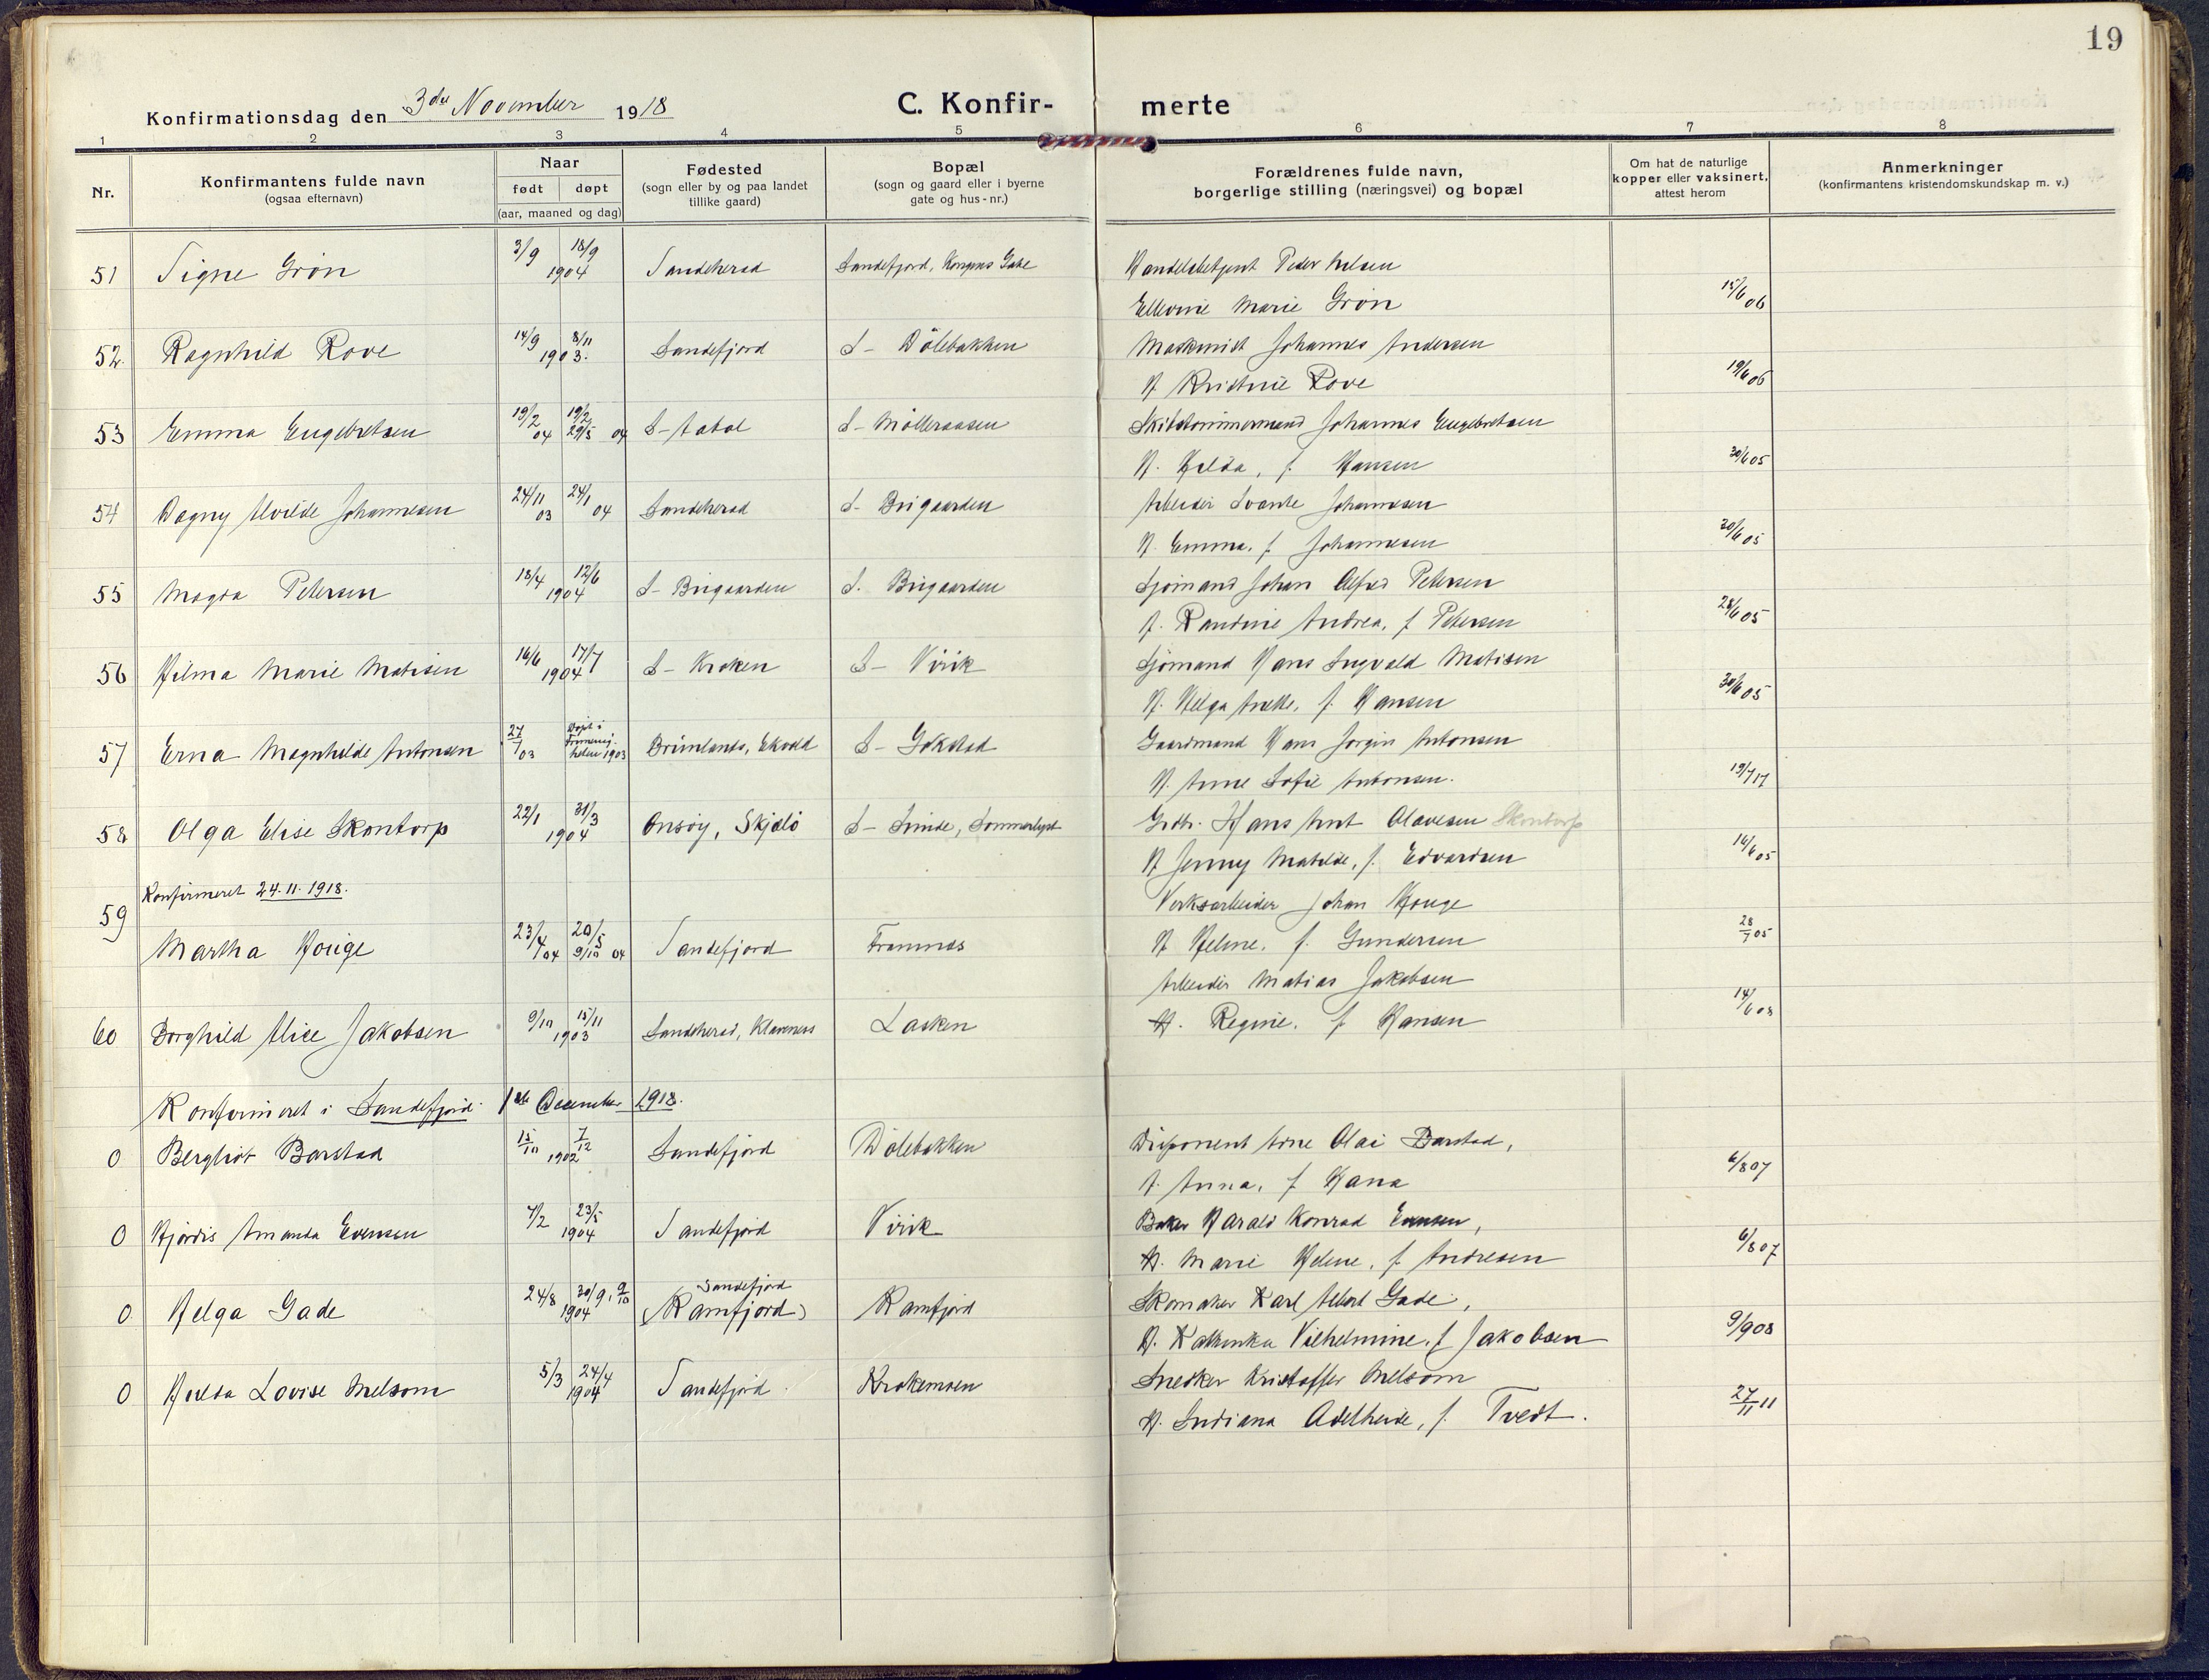 19
Konfirmationsdag den 3die November 1918
C. Konfir- merte
1 2 3 4 5 6 7 8
Nr.
Konfirmantens fulde navn
(ogsaa efternavn)
Naar
født døpt
(aar, maaned og dag)
Fødested
(sogn eller by og paa landet
tillike gaard)
Bopæl
(sogn og gaard eller i byerne
gate og hus-nr.)
Forældrenes fulde navn,
borgerlige stilling (næringsvei) og bopæl
Om hat de naturlige
kopper eller vaksinert,
attest herom
Anmerkninger
(konfirmantens kristendomskundskap m. v.)
51 Signe Grøn 3/9 18/9 1904 Sandeherad Sandefjord, Kongens Gate Handelsbetjent Peder Nilsen
Ellevine Marie Grøn 15/6 06
52 Ragnhild Rove 14/9 8/11 1903. Sandefjord S- Dølebakken Maskinist Johannes Andersen
H. Kristine Rove 19/6 06
53 Emma Engebretsen 19/2 04 19/2 29/5 04 S- Aabol S- Mølleraasen Skibstømmermand Johannes Engebretsen
H. Hilda, f. Hansen 30/6 05
54 Dagny Alvilde Johannesen 24/11 03 24/1 04 Sandeherad S- Brigaarden Arbeider Svante Johannesen
H. Emma, f. Johannesen 30/6 05
55 Magda Petersen 18/4 12/6 1904 S- Brigaarden S. Brigaarden Sjømand Johan Alfred Petersen
H. Randine Andrea, f. Petersen 28/6 05
56 Hilma Marie Matisen 16/6 17/7 1904 S- Kroken S- Virik Sjømand Hans Ingvald Matisen
H. Helga Anette, f. Hansen 30/6 05
57 Erna Magnhilde Antonsen 27/7 03 Døpt i Frimenigheten 1903 Brunlanes, Ekvold S- Gokstad Gaardmand Hans Jørgin Antonsen
H. Anne Sofie Antonsen. 19/7 17
58 Olga Elise Skontorp 22/1 31/3 1904 Onsøy, Skjælø S- Linde, Sommerlyst Grdbr. Hans Ant Olavesen Skontorp
H Jenny Matilde, f. Edvardsen 16/6 05
Konfirmeret 24.11.1918.
59 Martha Houge 23/4 04 20/5 9/10 04 Sandefjord Framnæs Verksarbeider Johan Houge
H Helene, f. Gundersen 28/7 05
60 Borghild Alice Jakobsen 9/10 15/11 1903 Sandeherad, Klavenæss Lasken Arbeider Matias Jakobsen
H. Regine, f Hansen 14/6 08
Konfirmeret i Sandefjord 1ste December 1918.
0 Bergliot Barstad 15/10 7/12 1902 Sandefjord Dølebakken Disponent Arne Olai Barstad,
H. Anna, f Hana 6/8 07
0 Hjørdis Amanda Evensen 4/2 23/5 1904 Sandefjord Virik Baker Harald Konrad Evensen,
H. Marie Helene, f. Andresen 6/8 07
0 Helga Gade 24/8 30/9, 9/10 1904 Sandefjord (Ramfjord) Ramfjord Skomaker Karl Albert Gade,
H. Kathinka Vilhelmine, f Jakobsen 9/9 08
0 Hulda Lovise Melsom 5/3 24/4 1904 Sandefjord Krokemoen Snedker Kristoffer Melsom
H. Indiana Adelheide, f. Tvedt. 27/11 11